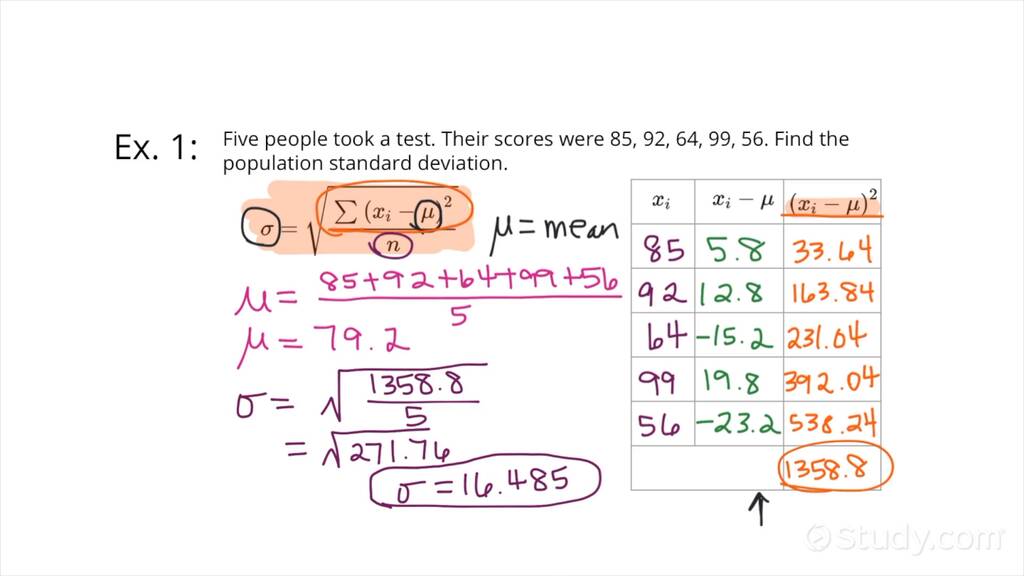 Ex. 1:
Five people took a test. Their scores were 85, 92, 64, 99, 56. Find the
population standard deviation.
σ = √(∑ (xᵢ − μ)² / n)
μ = mean
μ = 85+92+64+99+56 / 5
μ = 79.2
σ = √(1358.8 / 5)
= √271.76
σ = 16.485
xᵢ xᵢ − μ (xᵢ − μ)²
85 5.8 33.64
92 12.8 163.84
64 -15.2 231.04
99 19.8 392.04
56 -23.2 538.24
1358.8
↑
Study.com